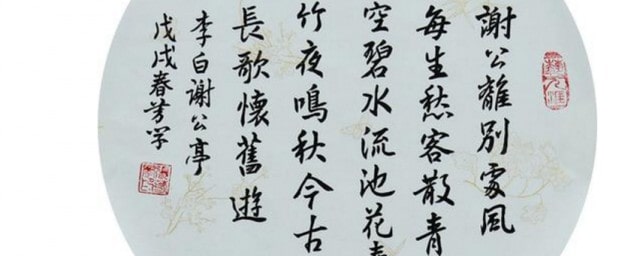 謝公離別處風
每生愁客散青
空碧水流池花
竹夜鳴秋今古
長歌懷舊遊
李白謝公亭
戊戌春芳学